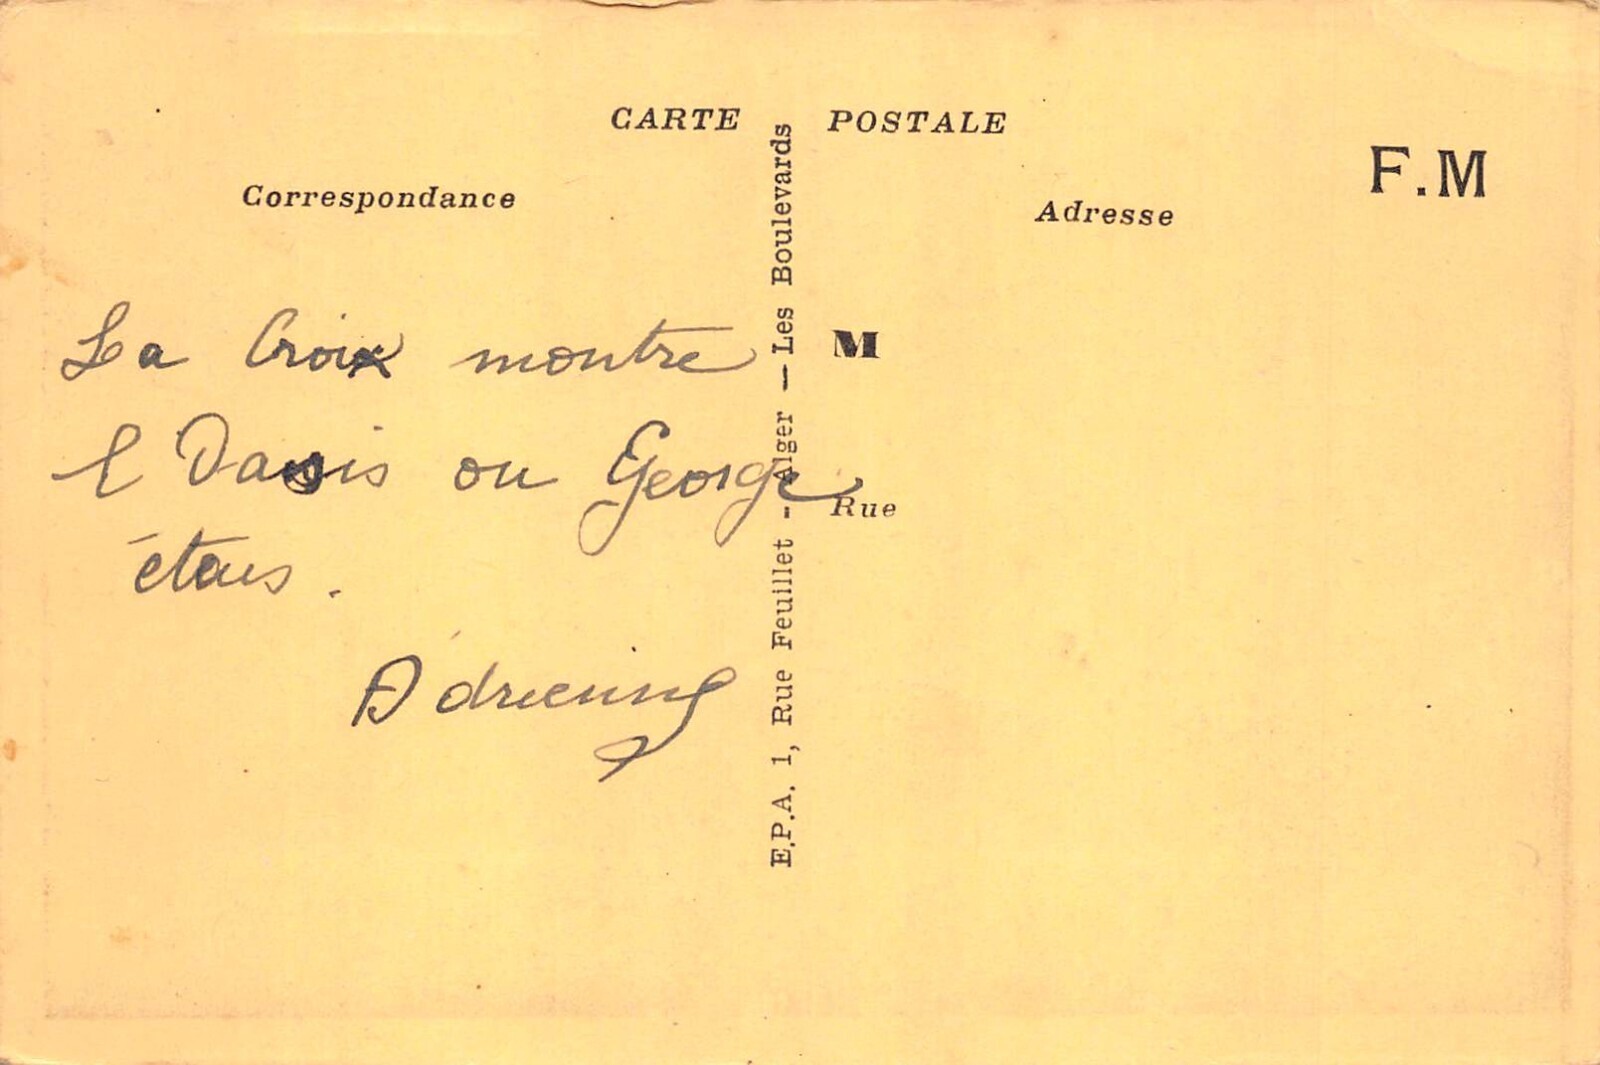 CARTE POSTALE
F.M
Correspondance
Adresse
La Croix montre
l Oasis ou George
étais.
Adrienne
M
Rue
E.P.A. 1, Rue Feuillet - Alger — Les Boulevards